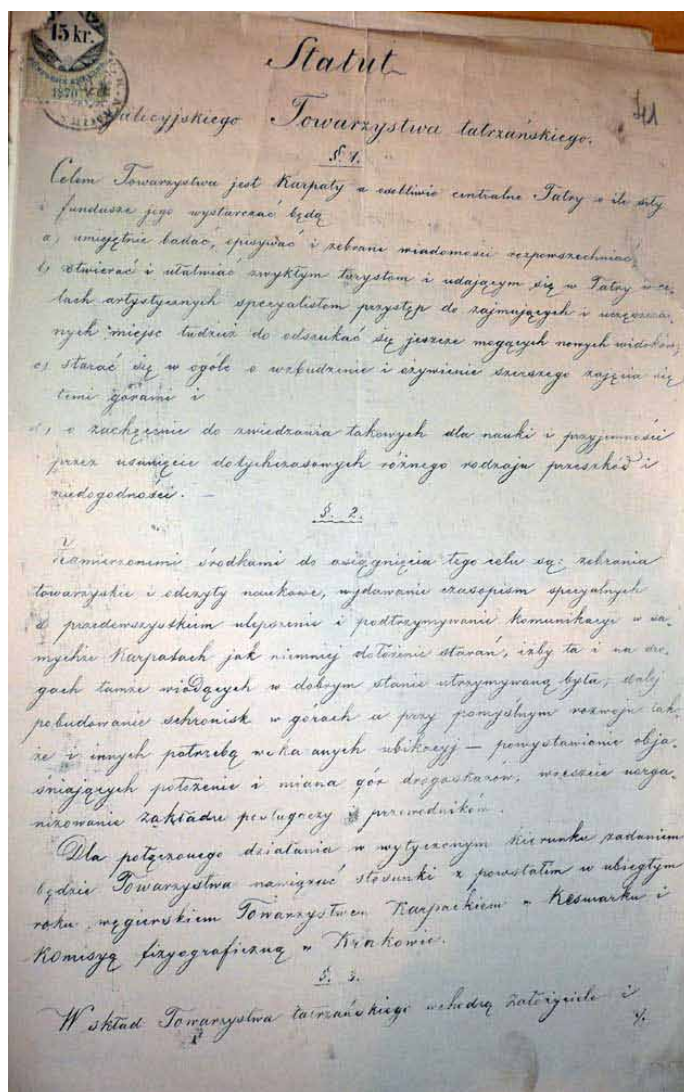 15 kr.
1870
Statut
41
galicyjskiego Towarzystwa tatrzańskiego.
§ 1.
Celem Towarzystwa jest Karpaty a osobliwie centralne Tatry o ile siły
i fundusze jego wystarczać będą
a, umiejętnie badać, opisywać i zebrane wiadomości rozpowszechniać,
b, otwierać i ułatwiać zwykłym turystom i udającym się w Tatry w ce-
lach artystycznych specyalistom przystęp do zajmujących i uczęszcza-
nych miejsc tudzież do odszukać się jeszcze mogących nowych widoków,
c, starać się w ogóle o wzbudzenie i ożywienie szerszego zajęcia się
temi górami i
d, o zachęcenie do zwiedzania takowych dla nauki i przyjemności
przez usunięcie dotychczasowych różnego rodzaju przeszkód i
niedogodności. —
§. 2.
Zamierzonemi środkami do osiągnięcia tego celu są: zebrania
towarzyskie i odczyty naukowe, wydawanie czasopism specyalnych
a przedewszystkiem ulepszenie i podtrzymywanie komunikacyi w sa-
mychże Karpatach jak niemniej dołożenie starań, iżby ta i na dro-
gach tamże wiodących w dobrym stanie utrzymywaną była; dalej
pobudowanie schronisk w górach a przy pomyślnym rozwoju tak-
że i innych potrzebą wskazanych ubikacyj — powystawianie obja-
śniających położenie i miana gór drogoskazów, wreszcie zorga-
nizowanie zakładu posługaczy i przewodników.
Dla połączonego działania w wytyczonym kierunku zadaniem
będzie Towarzystwa nawiązać stosunki z powstałym w ubiegłym
roku węgierskiem Towarzystwem Karpackiem w Kesmarku i
Komisyą fizyograficzną w Krakowie.
§. 3.
W skład Towarzystwa tatrzańskiego wchodzą założyciele i